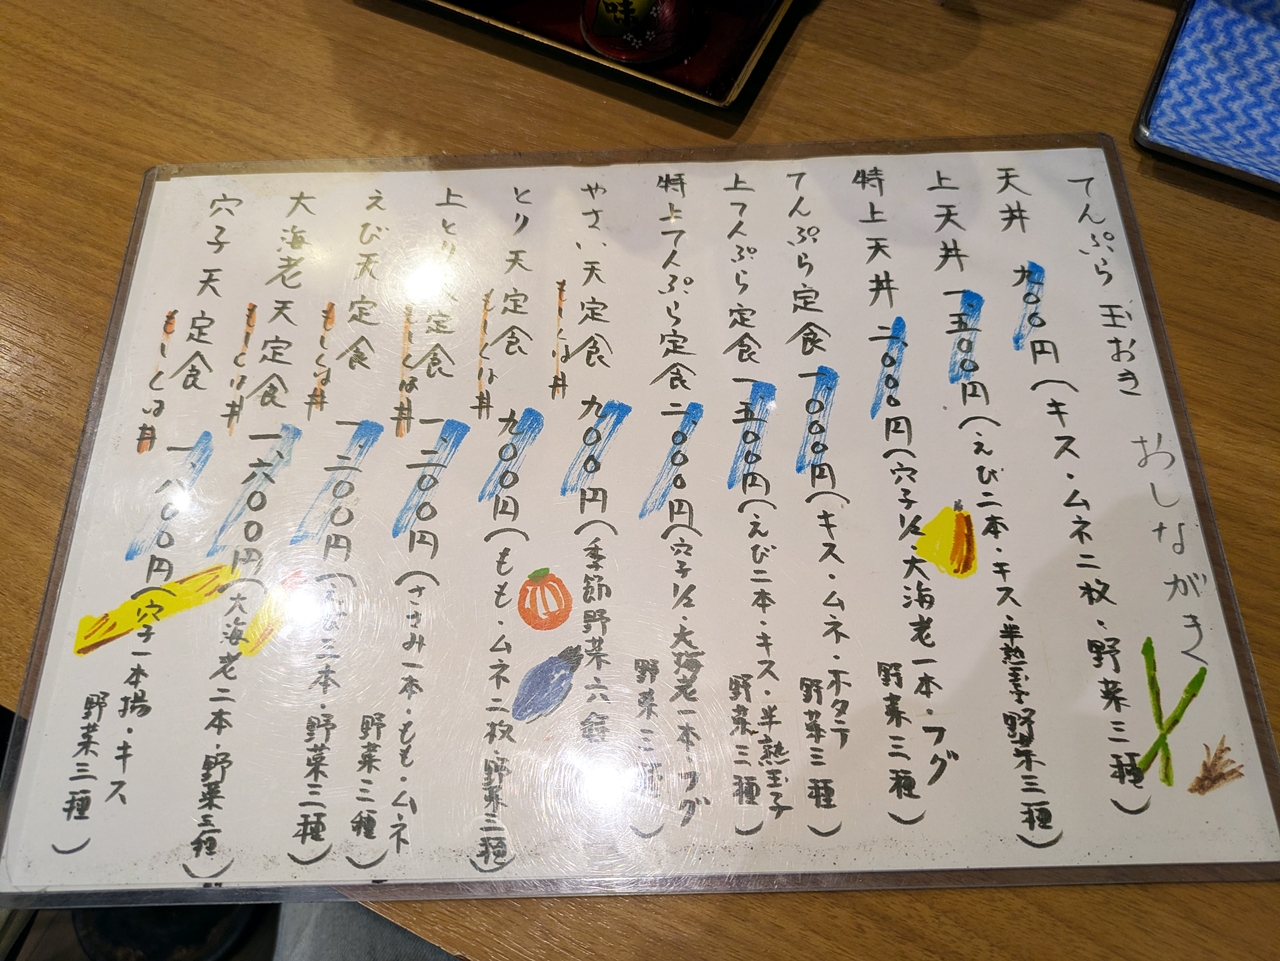 てんぷら 玉おき おしながき
天丼 九〇〇円(キス・ムネ二枚・野菜三種)
上天丼 一、五〇〇円(えび二本・キス・半熟玉子 野菜三種)
特上天丼 二、〇〇〇円(穴子1/2・大海老一本・フグ
野菜三種)
てんぷら定食 一、〇〇〇円(キス・ムネ・ホタテ
野菜三種)
上てんぷら定食 一、五〇〇円(えび二本・キス・半熟玉子
野菜三種)
特上てんぷら定食 二、〇〇〇円(穴子1/2・大海老一本・フグ
野菜三種)
やさい天定食 もしくは丼 九〇〇円(季節野菜六種)
とり天定食 もしくは丼 九〇〇円(もも・ムネ二枚・野菜三種)
上とり天定食 もしくは丼 一、二〇〇円(ささみ一本・もも・ムネ
野菜三種)
えび天定食 もしくは丼 一、二〇〇円(えび三本・野菜三種)
大海老天定食 もしくは丼 一、六〇〇円(大海老二本・野菜三種)
穴子天定食 もしくは丼 一、八〇〇円(穴子一本揚・キス
野菜三種)
味